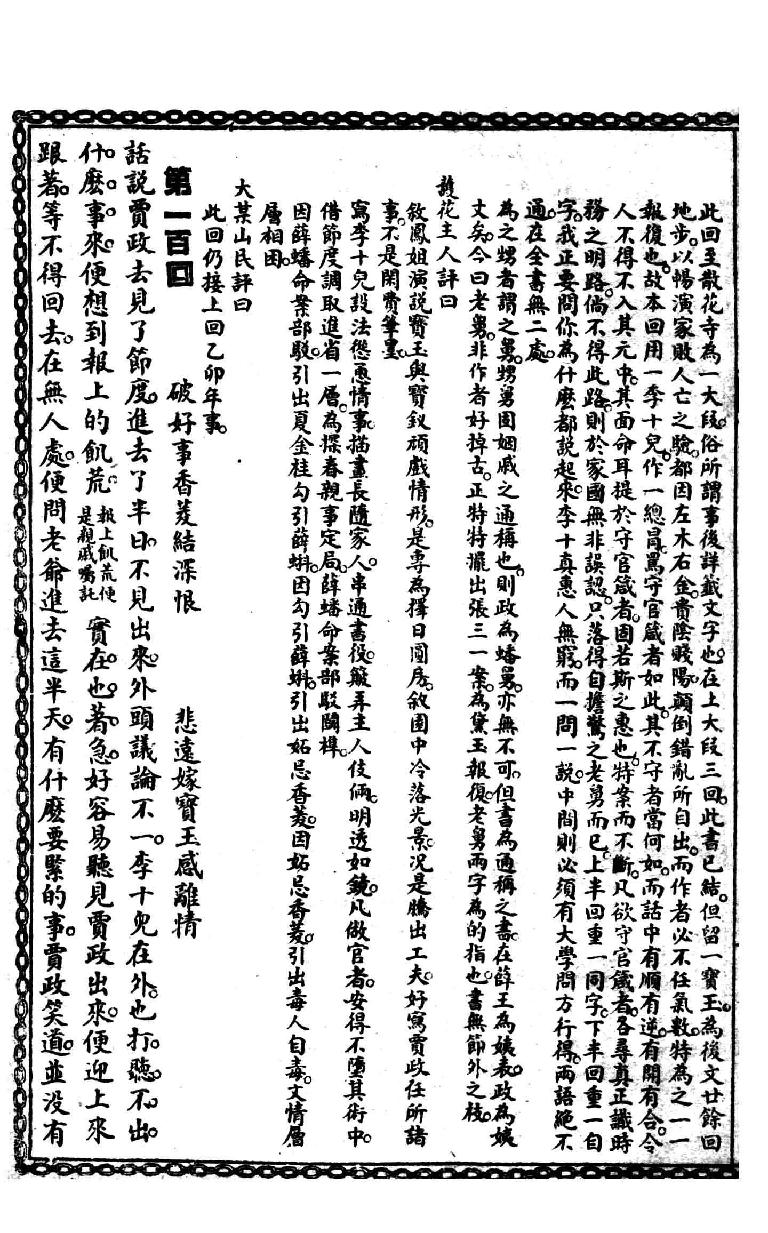 此回至散花寺為一大段。俗所謂事後詳籤文字也。在上大段三回。此書已結。但留一寶玉。為後文廿餘回
地步。以暢演家敗人亡之驗。都因左木右金。貴陰賤陽。顛倒錯亂所自出。而作者必不任氣數。特為之一一
報復也。故本回用一李十兒。作一總冒。罵守官箴者如此。其不守者當何如。而話中有順有逆。有開有合。令
人不得不入其元中。其面命耳提於守官箴者。固若斯之惠也。特案而不斷。凡欲守官箴者。各尋真正識時
務之明路。倘不得此路。則於家國無非誤認。只落得自擔驚之老舅而已。上半回重一同字。下半回重一自
字。我正要問你為什麽都說起來。李十真惠人無窮。而一問一說。中間則必須有大學問方行得。兩語絶不
通。在全書無二處。
為之甥者謂之舅。甥舅固姻戚之通稱也。則政為蟠舅。亦無不可。但書為通稱之書。在薛王為姨表。政為姨
丈矣。今曰老舅。非作者好掉古。正特特擺出張三一案。為黛玉報復。老舅兩字為的指也。書無節外之枝。
護花主人評曰
敘鳳姐演説寶玉與寶釵頑戲情形。是專為擇日圓房。敘園中冷落光景。况是騰出工夫。好寫賈政任所諸
事。不是閑費筆墨。
寫李十兒設法慫恿情事。描畫長隨家人。串通書役。簸弄主人伎倆。明透如鏡。凡做官者。安得不墮其術中。
借節度調取進省一層。為探春親事定局。薛蟠命案部駁關榫。
因薛蟠命案部駁。引出夏金桂勾引薛蝌。因勾引薛蝌。引出妬忌香菱。因妬忌香菱。引出毒人自毒。文情層
層相因。
大某山民評曰
此回仍接上回乙卯年事。
第一百回　破好事香菱結深恨　悲遠嫁寶玉感離情
話説賈政去見了節度。進去了半日。不見出來。外頭議論不一。李十兒在外。也打聽不出
什麽事來。便想到報上的飢荒。報上飢荒便是親戚囑託實在也著急。好容易聽見賈政出來。便迎上來
跟著。等不得回去。在無人處。便問老爺進去這半天。有什麽要緊的事。賈政笑道。並没有